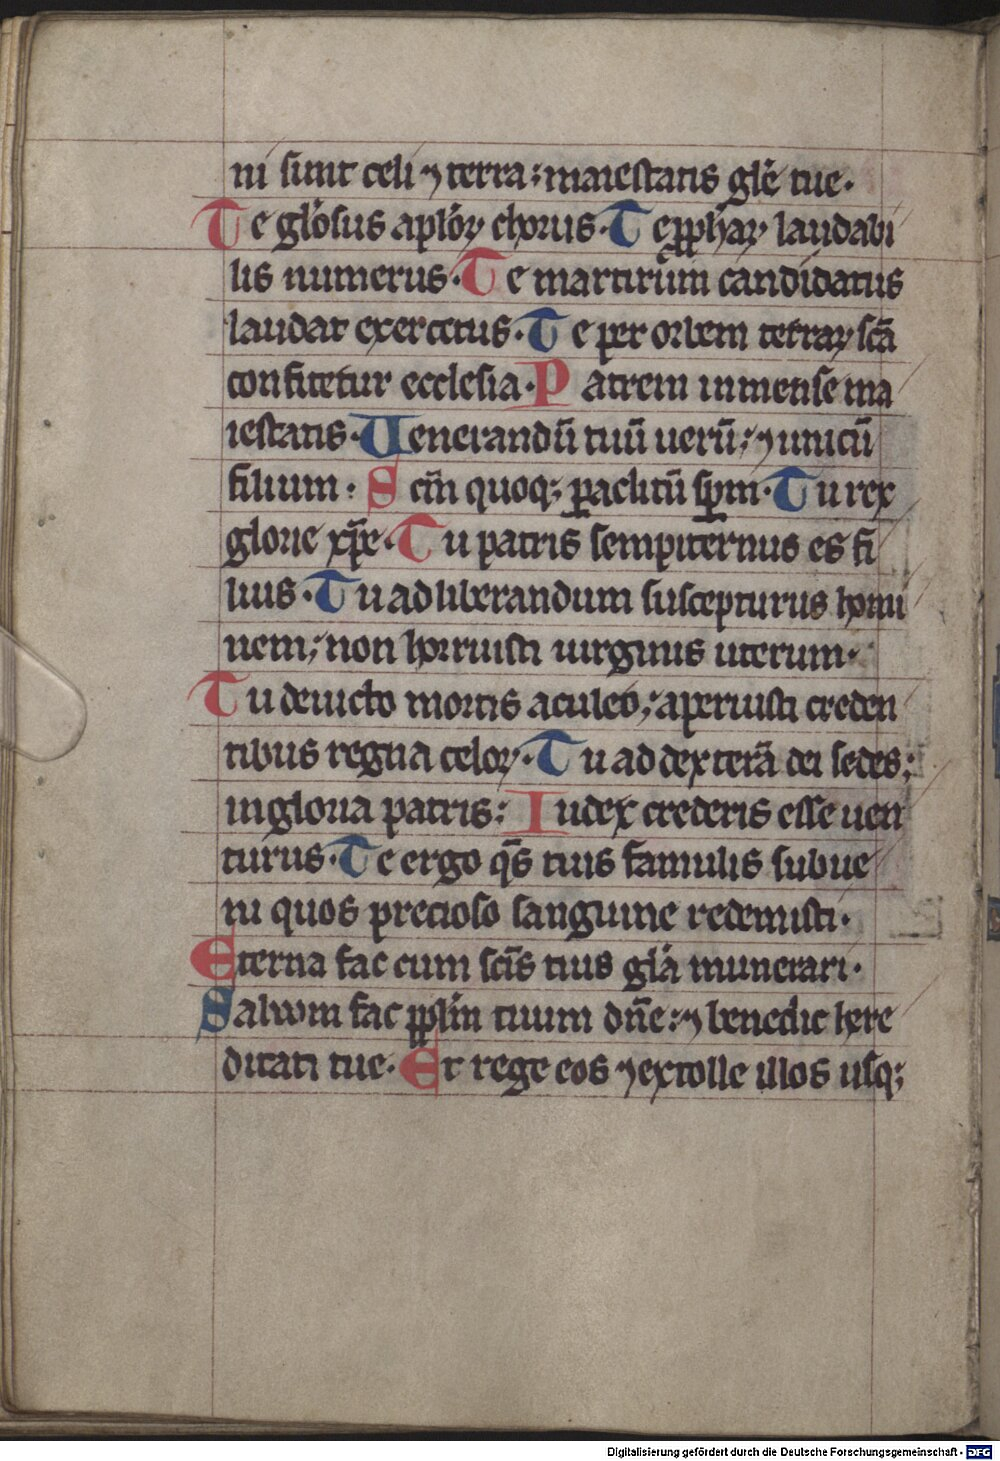 ni sunt celi ⁊ terra : maiestatis gl̄e tue .
Te gl̄osus apl̄oꝝ chorus . Te ꝓphaꝝ laudabi
lis numerus . Te martirum candidatus
laudat exercitus . Te per orbem terraꝝ sc̄a
confitetur ecclesia . Patrem inmense ma
iestatis . Uenerandū tuū uerū : ⁊ unicū
filium : Sc̄m quoq; ꝑaclitū sp̄m . Tu rex
glorie xp̄e . Tu patris sempiternus es fi
lius . Tu ad liberandum suscepturus homi
nem : non horruisti uirginis uterum .
Tu deuicto mortis aculeo : aperuisti creden
tibus regna celoꝝ . Tu ad dexterā dei sedes :
in gloria patris : Iudex crederis esse uen
turus . Te ergo q̄s tuis famulis subue
ni quos precioso sanguine redemisti .
Eterna fac cum sc̄is tuis gl̄a munerari .
Saluum fac ppl̄m tuum dn̄e : ⁊ benedic here
ditati tue . Et rege eos ⁊ extolle illos usq;
Digitalisierung gefördert durch die Deutsche Forschungsgemeinschaft - DFG